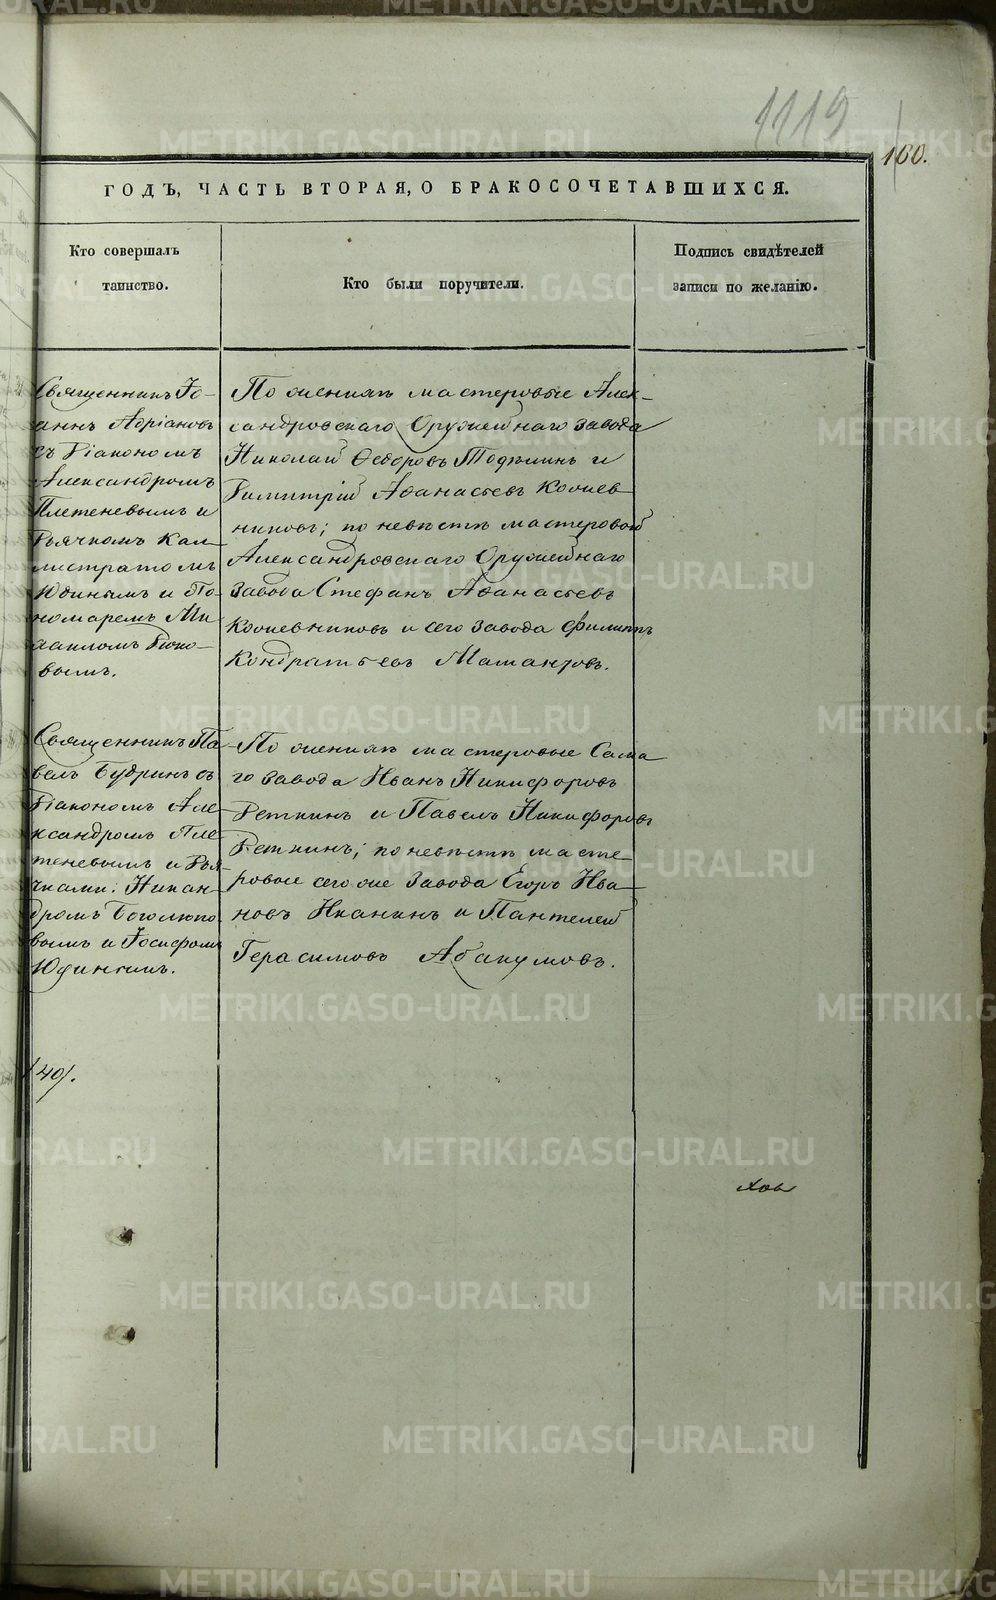 1119
160.
ГОДЪ, ЧАСТЬ ВТОРАЯ, О БРАКОСОЧЕТАВШИХСЯ.
Кто совершалъ
таинство.
Кто были поручители.
Подпись свидѣтелей
записи по желанію.
Священникъ Іо-
аннъ Адріановъ
съ Діакономъ
Александромъ
Плетеневымъ и
Дьячкомъ Кал-
листратомъ
Юдинымъ и По-
номаремъ Ми-
хаиломъ
вымъ.
По женихѣ мастеровые Алек-
сандровскаго Оружейнаго завода
Николай Ѳедоровъ и
Димитрій Аѳанасьевъ Кожев-
никовъ; по невѣстѣ мастеровой
Александровскаго Оружейнаго
завода Стефанъ Аѳанасьевъ
Кожевниковъ и сего завода Филиппъ
Кондратьевъ
Священникъ Па-
велъ Будринъ съ
Діакономъ Але-
ксандромъ Пле-
теневымъ и Дья-
чками: Никан-
дромъ Боголюбо-
вымъ и Іосифомъ
Юдинымъ.
По женихѣ мастеровые Сама-
го завода Иванъ Никифоровъ
Деткинъ и Павелъ Никифоровъ
Деткинъ; по невѣстѣ масте-
ровые сего же завода Егоръ Ива-
новъ Иканинъ и Пантелей
Герасимовъ Абакумовъ.
/40/.
METRIKI.GASO-URAL.RU